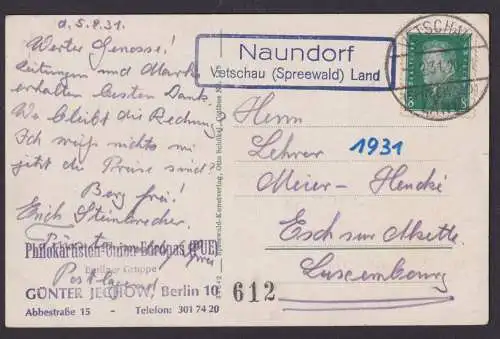 d. 5.8.31.
Werter Genosse!
Zeitungen und Marken
erhalten besten Dank.
Wo bleibt die Rechnung
Ich weiß nichts mi
jetzt die Preise sind?
Berg frei!
Erich Steinbrecher.
Philokartisten-Union Europas (PUE)
Berliner Gruppe
Postlagernd
GÜNTER JECHOW, Berlin 10
Abbestraße 15 - Telefon: 301 74 20
Naundorf
Vetschau (Spreewald) Land
VETSCHAU
8 8
Spreewald-Kunstverlag, Otto
Herrn
Lehrer
1931
Meier-Hencké
Esch sur Alzette
Luxembourg
612